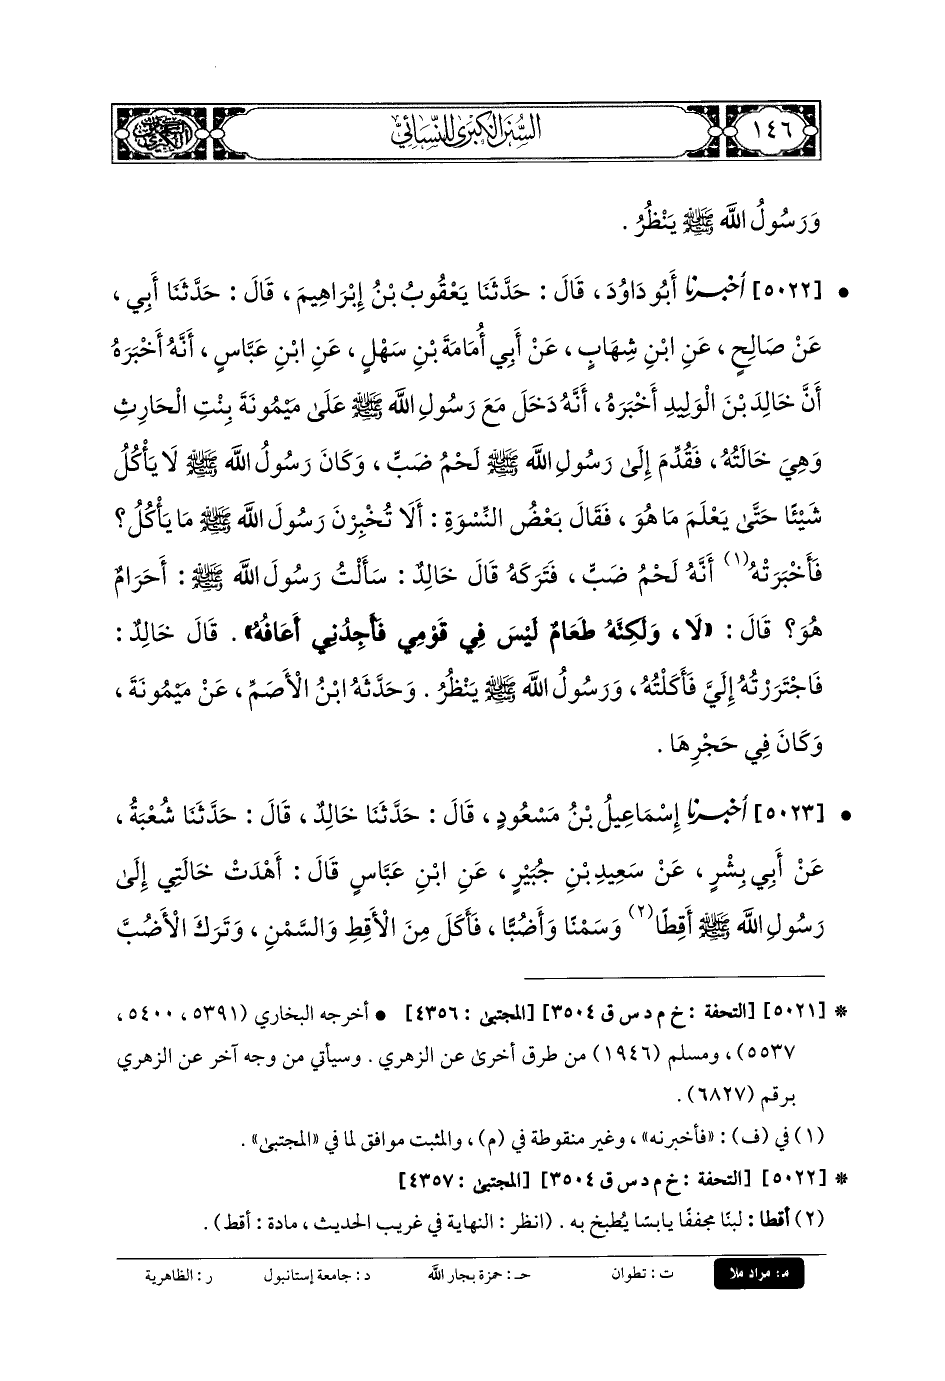 ١٤٦
السنن الكبرى للنسائي
وَرَسُولُ اللَّه ﷺ يَنْظُرُ .
• [٥٠٢٢] أَخْبَرَنَا أَبُو دَاوُدَ ، قَالَ : حَدَّثَنَا يَعْقُوبُ بْنُ إِبْرَاهِيمَ ، قَالَ : حَدَّثَنَا أَبِي ،
عَنْ صَالِحٍ ، عَنِ ابْنِ شِهَابٍ ، عَنْ أَبِي أُمَامَةَ بْنِ سَهْلٍ ، عَنِ ابْنِ عَبَّاسٍ ، أَنَّهُ أَخْبَرَهُ
أَنَّ خَالِدَ بْنَ الْوَلِيدِ أَخْبَرَهُ ، أَنَّهُ دَخَلَ مَعَ رَسُولِ اللَّه ﷺ عَلَىٰ مَيْمُونَةَ بِنْتِ الْحَارِثِ
وَهِيَ خَالَتُهُ ، فَقُدِّمَ إِلَىٰ رَسُولِ اللَّه ﷺ لَحْمُ ضَبٍّ ، وَكَانَ رَسُولُ اللَّه ﷺ لَا يَأْكُلُ
شَيْئًا حَتَّىٰ يَعْلَمَ مَا هُوَ ، فَقَالَ بَعْضُ النِّسْوَةِ : أَلَا تُخْبِرْنَ رَسُولَ اللَّه ﷺ مَا يَأْكُلُ ؟
فَأَخْبَرَتْهُ(١) أَنَّهُ لَحْمُ ضَبٍّ ، فَتَرَكَهُ قَالَ خَالِدٌ : سَأَلْتُ رَسُولَ اللَّه ﷺ : أَحَرَامٌ
هُوَ؟ قَالَ : «لَا ، وَلَكِنَّهُ طَعَامٌ لَيْسَ فِي قَوْمِي فَأَجِدُنِي أَعَافُهُ» . قَالَ خَالِدٌ :
فَاجْتَرَرْتُهُ إِلَيَّ فَأَكَلْتُهُ ، وَرَسُولُ اللَّه ﷺ يَنْظُرُ . وَحَدَّثَهُ ابْنُ الْأَصَمِّ ، عَنْ مَيْمُونَةَ ،
وَكَانَ فِي حَجْرِهَا .
• [٥٠٢٣] أَخْبَرَنَا إِسْمَاعِيلُ بْنُ مَسْعُودٍ ، قَالَ : حَدَّثَنَا خَالِدٌ ، قَالَ : حَدَّثَنَا شُعْبَةُ ،
عَنْ أَبِي بِشْرٍ ، عَنْ سَعِيدِ بْنِ جُبَيْرٍ ، عَنِ ابْنِ عَبَّاسٍ قَالَ : أَهْدَتْ خَالَتِي إِلَىٰ
رَسُولِ اللَّه ﷺ أَقِطًا(٢) وَسَمْنًا وَأَضُبًّا ، فَأَكَلَ مِنَ الْأَقِطِ وَالسَّمْنِ ، وَتَرَكَ الْأَضُبَّ
* [٥٠٢١] [التحفة : خ م د س ق ٣٥٠٤] [المجتبىٰ : ٤٣٥٦] • أخرجه البخاري (٥٣٩١ ، ٥٤٠٠ ،
٥٥٣٧) ، ومسلم (١٩٤٦) من طرق أخرىٰ عن الزهري . وسيأتي من وجه آخر عن الزهري
برقم (٦٨٢٧) .
(١) في (ف) : «فأخبرنه» ، وغير منقوطة في (م) ، والمثبت موافق لما في «المجتبىٰ» .
* [٥٠٢٢] [التحفة : خ م د س ق ٣٥٠٤] [المجتبىٰ : ٤٣٥٧]
(٢) أقطا : لبنًا مجففًا يابسًا يُطبخ به . (انظر : النهاية في غريب الحديث ، مادة : أقط) .
م: مراد ملا ت : تطوان حـ : حمزة بجار اللَّه د : جامعة إستانبول ر : الظاهرية